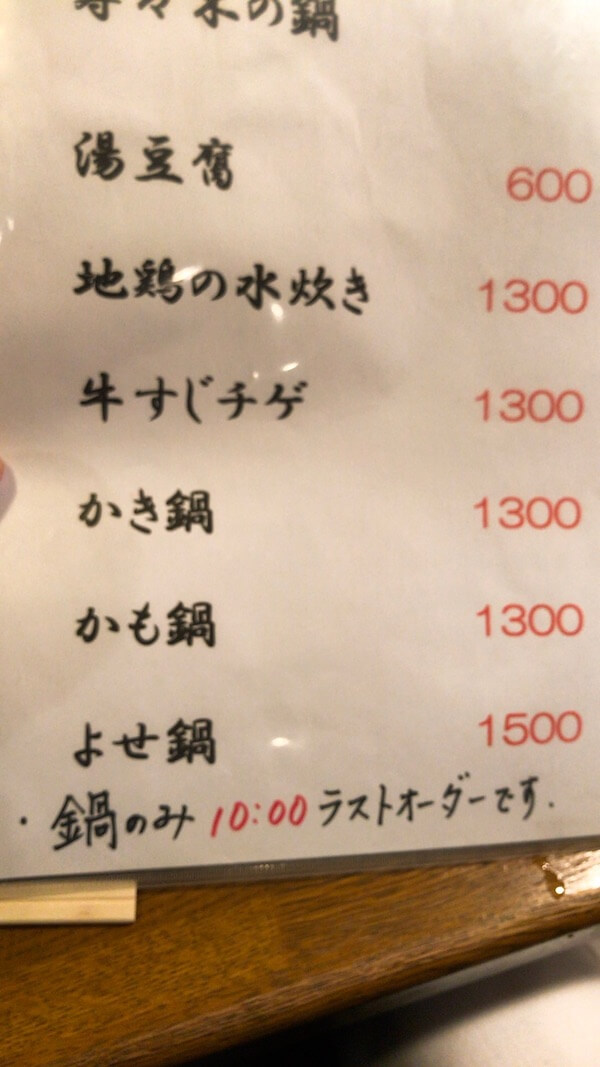 々木の鍋
湯豆腐 600
地鶏の水炊き 1300
牛すじチゲ 1300
かき鍋 1300
かも鍋 1300
よせ鍋 1500
・鍋のみ 10:00 ラストオーダーです.